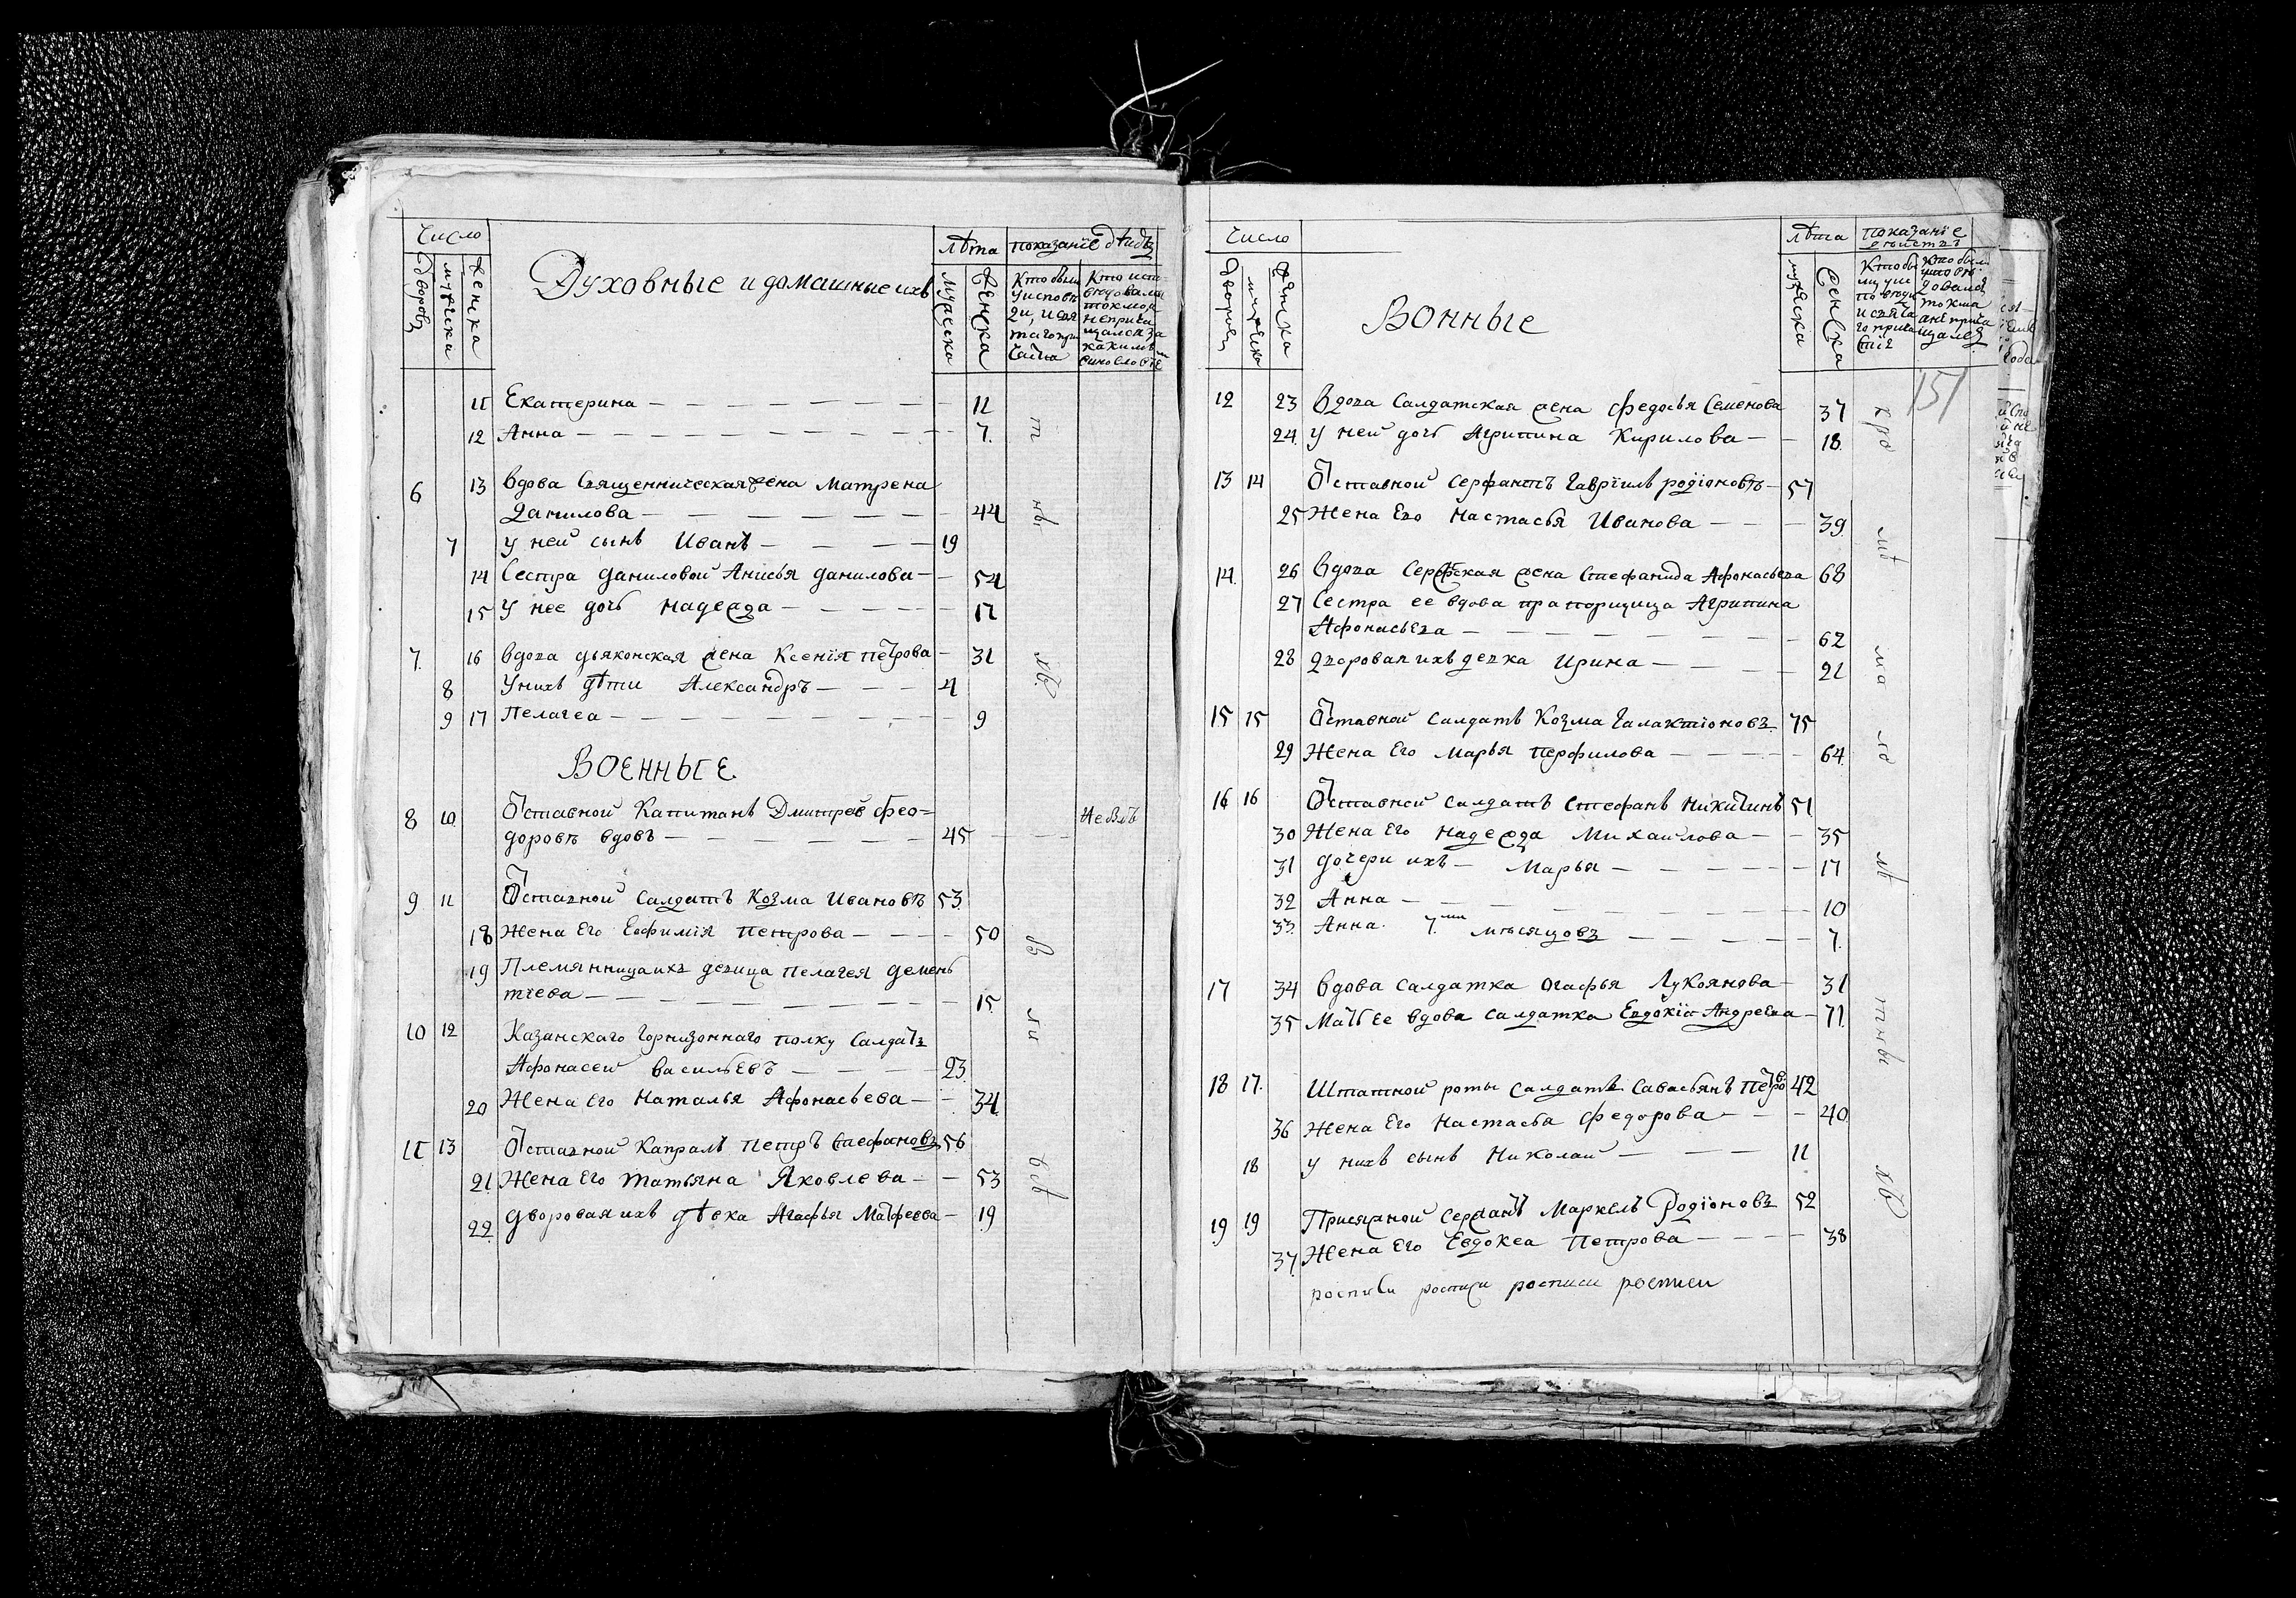 Число
Дворовъ
мужеска
женска
Духовные и домашние ихъ
лѣта
мужеска
женска
показанїе дѣиствъ
Кто были
у исповѣ
ди, и свя
таго при
Кто испо
ведовалис
токмо а
не прича
щался за
какимъ
11 Екатерина 11
12 Анна 7.
6 13 вдова Священническая жена Матрена
Данилова 44
7 у ней сынъ Иванъ 19
14 Сестра Даниловой Анисья данилова 54
15 у нее дочь надежда 17
7. 16 вдова дьяконская жена Ксенїя петрова 31
8 У нихъ дѣти Александръ 4
9 17 Пелагеа 9
Военные.
8 10 Ѿставной Капитанъ Дмитреи Фео=
доровъ вдовъ 45
9 11 Ѿставной Салдатъ Козма Ивановъ 53.
18 Жена Его Евфимїя Петрова 50
19 Племянница ихъ девица пелагея демень
тїева 15.
10 12 Казанскаго Горнизоннаго полку Салдатъ
Афонасеи васильевъ 23.
20 Жена Его Наталья Афонасьева 34.
11 13 Ѿставной Капралъ петръ Стефановъ 56
21. Жена Его татьяна Яковлева 53
22. дворовая ихъ дѣвка Агафья Матфеева 19
Число
Дворовъ
мужеска
женска
Вонные
лѣта
мужеска
женска
показанїе
151
12 23 вдова Салдатская жена федосья Семенова 37
24. у ней дочь Агрипина Кирилова 18.
13 14 Ѿставной сержантъ Гаврїилъ родїоновъ 57
25 Жена Его Настасья Иванова 39.
14. 26 вдова Сержская жена Стефанида Афонасьева 68
27 Сестра ее вдова прапорщица Агрипина
Афонасьева 62
28 дворовая ихъ девка Ирина 21
15 15 Ѿставной салдатъ Козма Галактїоновъ 75
29 Жена Его Марья Перфилова 64.
16 16 Ѿставной салдатъ Стефанъ Никитинъ 51
30 Жена Его надежда Михаилова 35
31 дочери ихъ Марья 17
32 Анна 10
33. Анна. 7.ми мѣсяцовъ 7.
17 34 вдова салдатка огафья Лукоянова 31
35 Мать ее вдова салдатка Евдокїа Андреева 71.
18 17. Штатной роты салдатъ Савасьянъ Петро 42
36 Жена Его Настасья Федорова 40.
18 у нихъ сынъ Николаи 11
19 19 Присяжной сержанъ Маркелъ Родїоновъ 52
37. Жена Его Евдокеа Петрова 38
росписи росписи росписи росписи